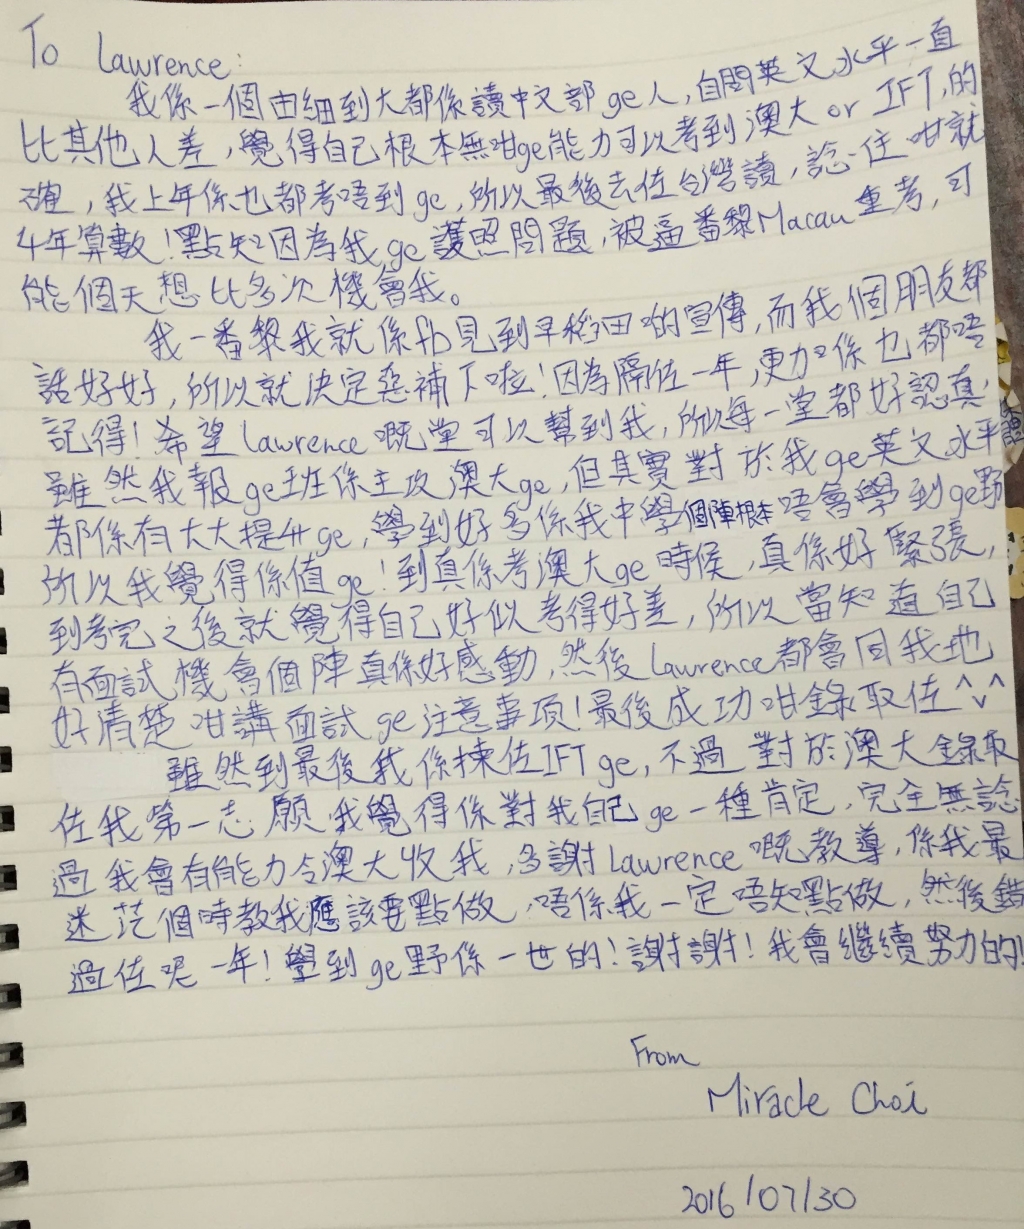 To Lawrence:
我係一個由細到大都係讀中文部ge人,自問英文水平一直
比其他人差,覺得自己根本無咁ge能力可以考到澳大or IFT,的
確,我上年係也都考唔到ge,所以最後去佐台灣讀,諗住咁就
4年算數!點知因為我ge護照問題,被逼番黎Macau重考,可
能個天想比多次機會我。
我一番黎我就係fb見到早稻田啲宣傳,而我個朋友都
話好好,所以就決定惡補下啦!因為隔佐一年,更加係也都唔
記得!希望Lawrence嘅堂可以幫到我,所以每一堂都好認真,
雖然我報ge班係主攻澳大ge,但其實對於我ge英文水平
都係有大大提升ge,學到好多係我中學個陣根本唔會學到ge野
所以我覺得係值ge!到真係考澳大ge時候,真係好緊張,
到考完之後就覺得自己好似考得好差,所以當知道自己
有面試機會個陣真係好感動,然後Lawrence都會同我地
好清楚咁講面試ge注意事項!最後成功咁錄取佐^v^
雖然到最後我係揀佐IFT ge,不過對於澳大錄取
佐我第一志願我覺得係對我自己ge一種肯定,完全無諗
過我會有能力令澳大收我,多謝Lawrence嘅教導,係我最
迷茫個時教我應該要點做,唔係我一定唔知點做,然後錯
過佐呢一年!學到ge野係一世的!謝謝!我會繼續努力的!
From
Miracle Choi
2016/07/30